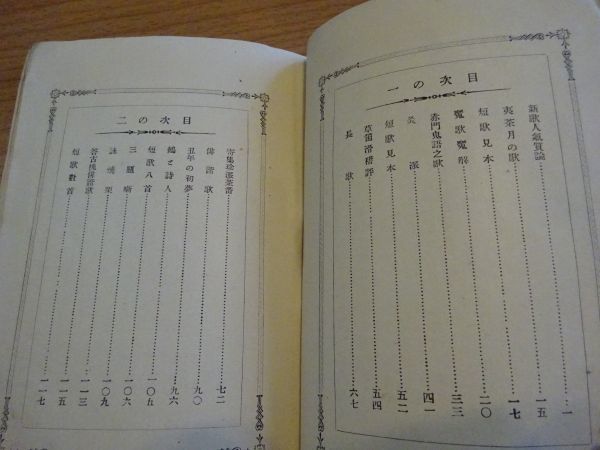 一の次目
新歌人氣質論……一
英茶月の歌……一五
短歌見本……一七
鬼歌鬼解……二〇
赤門鬼語之歌……三三
短歌見本……五二
草笛滑稽評……五四
長歌……六七
二の次目
寄集珍派茶話……七二
俳諧歌……九〇
丑年の初夢……九六
鶴と詩人……一〇五
短歌八首……一〇六
三題噺……一〇九
一一三
一一五
短歌數首……一一七